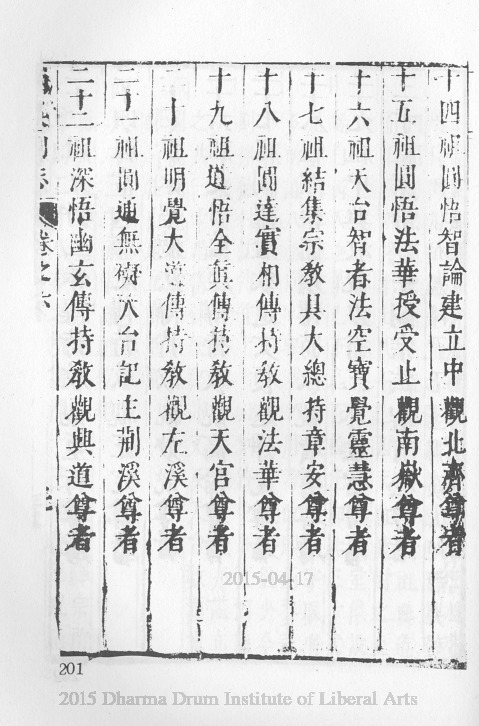 十四祖圓悟智論建立中觀北齊尊者
十五祖圓悟法華授受止觀南嶽尊者
十六祖天台智者法空寶覺靈慧尊者
十七祖結集宗教具大總持章安尊者
十八祖圓達實相傳持教觀法華尊者
十九祖道悟全真傳持教觀天宮尊者
二十祖明覺大道傳持教觀左溪尊者
二十一祖圓通無礙天台記主荊溪尊者
二十二祖深悟幽玄傳持教觀興道尊者
卷之六
2015-04-17
201
2015 Dharma Drum Institute of Liberal Arts